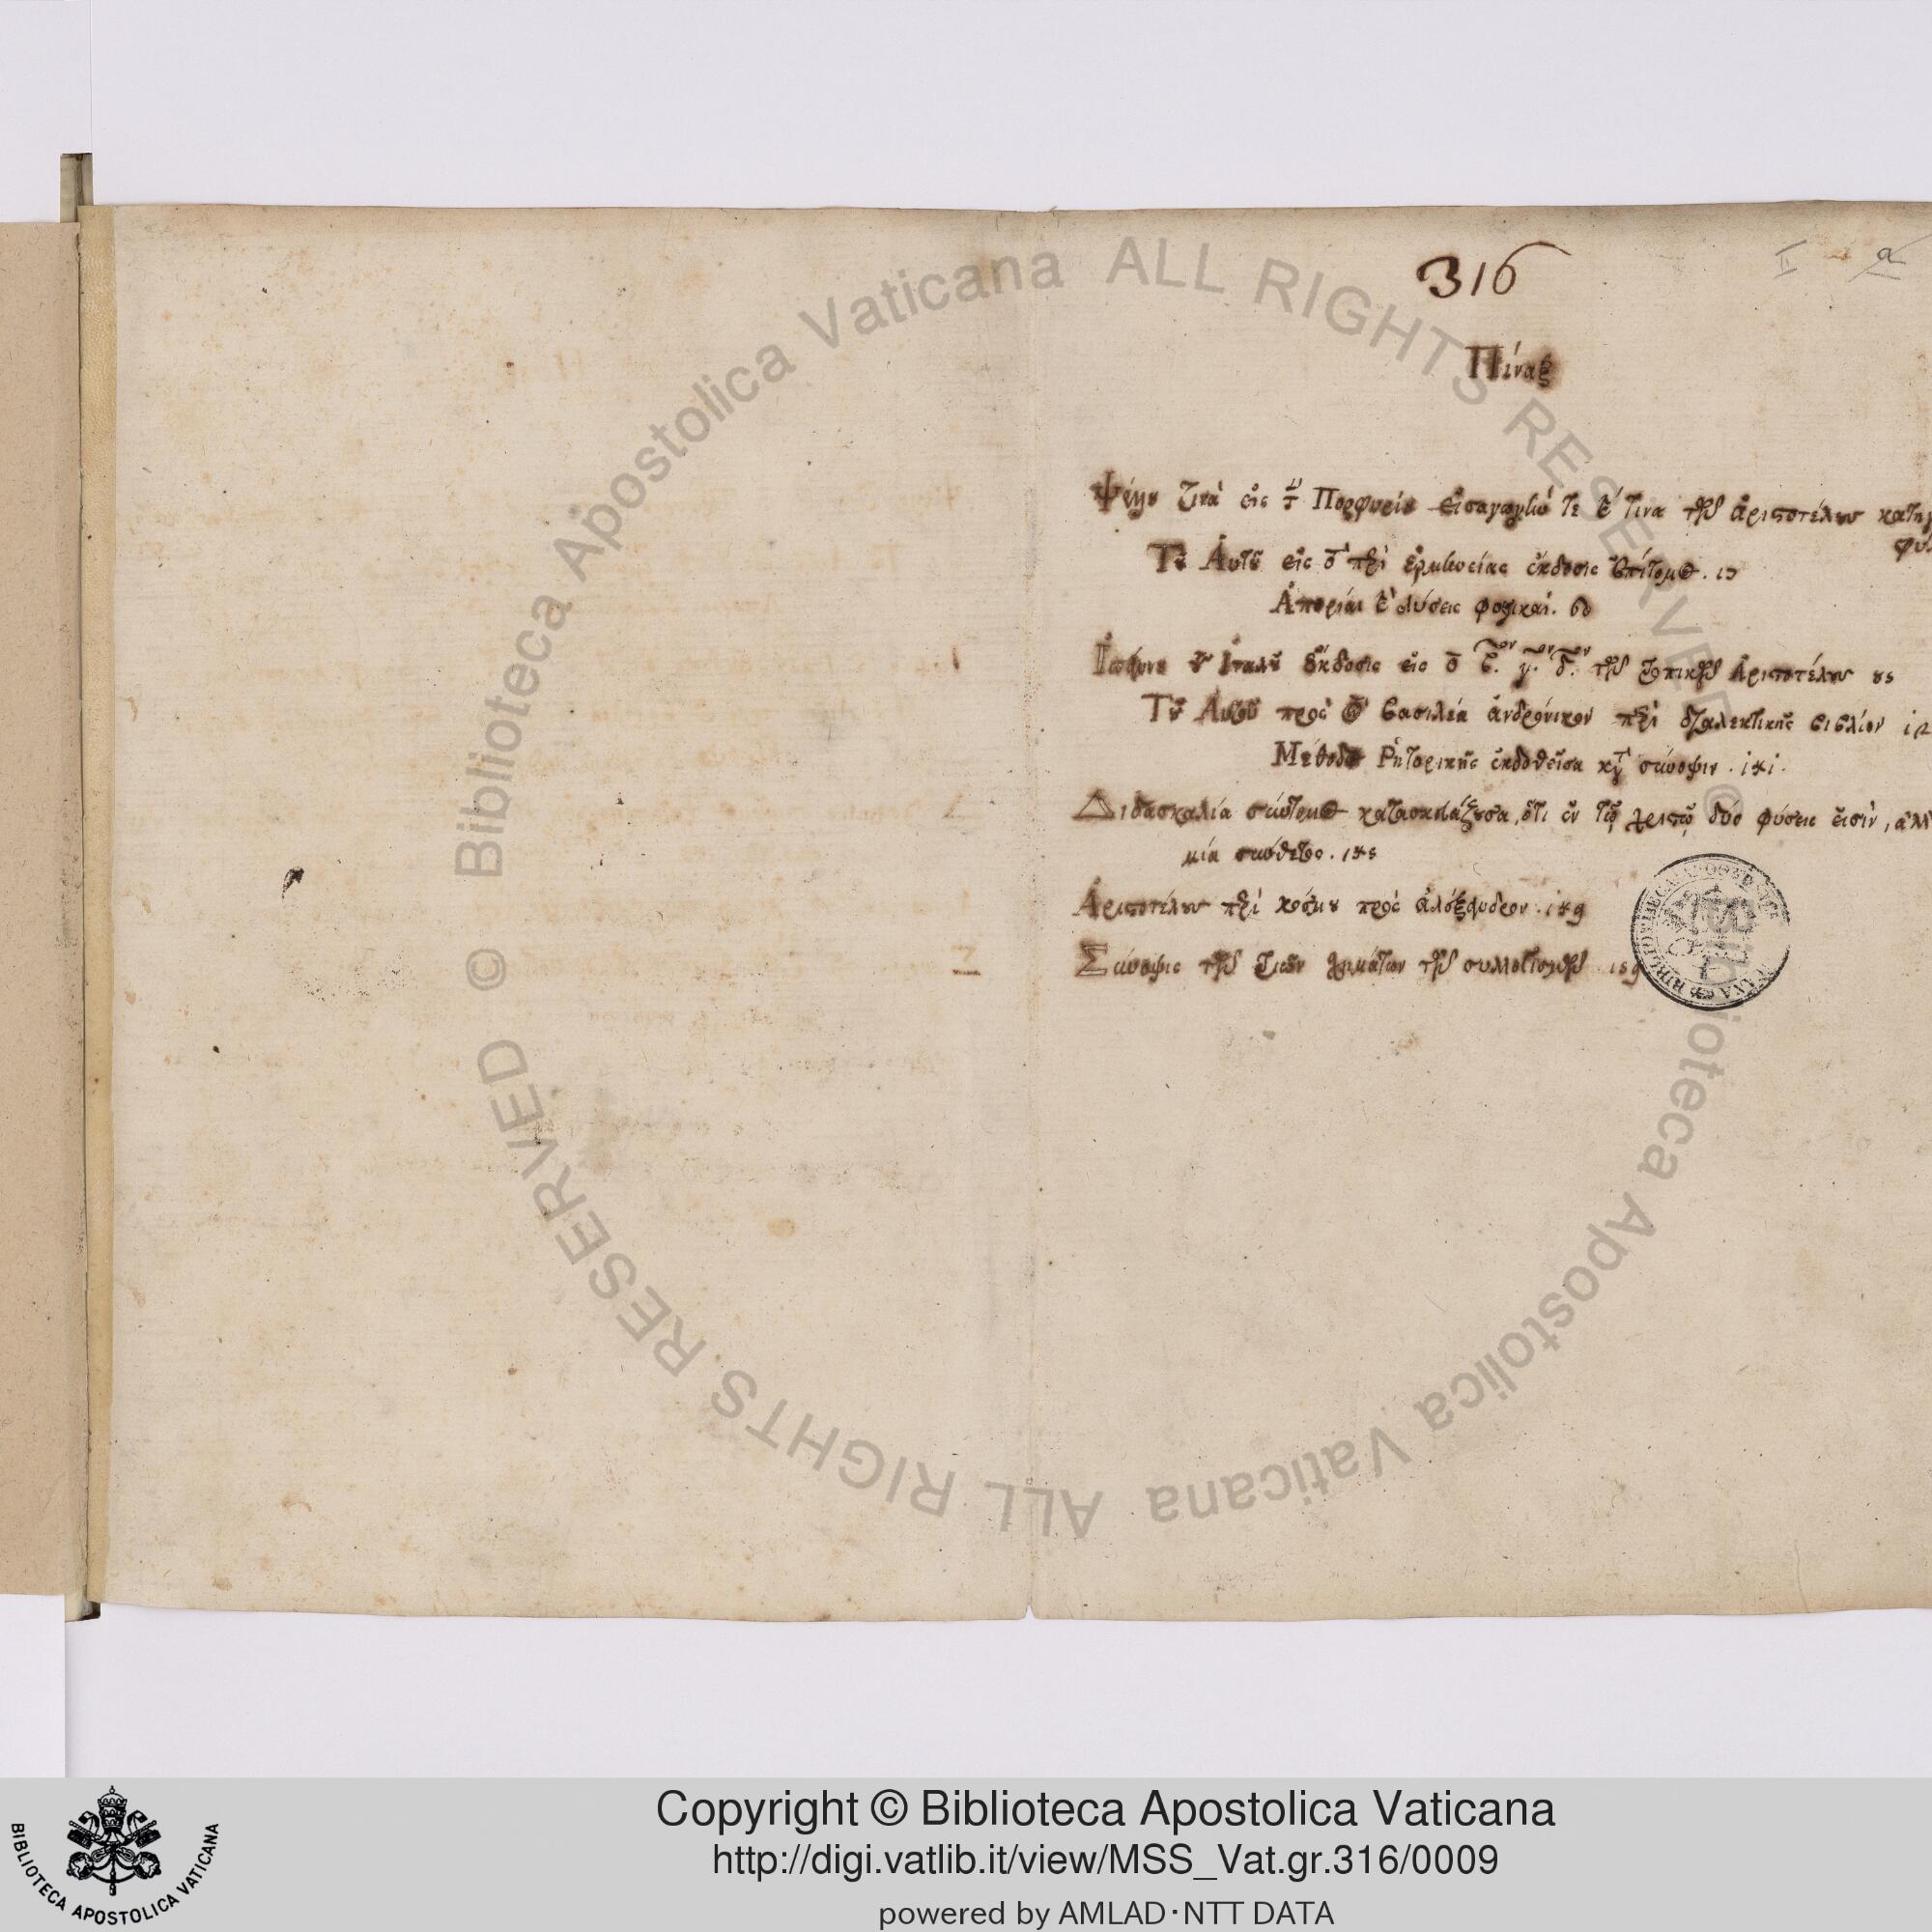 316
Πίναξ
Ψέλλου τινὰ εἰς τὴν Πορφυρίου εἰσαγωγὴν τε καὶ τινα τῶν ἀριστοτέλους
Τοῦ Αὐτοῦ εἰς τὸ περὶ ἑρμηνείας ἔκδοσις ἐπίτομος.
Ἀπορίαι καὶ λύσεις φυσικαί.
Ἰωάννου τοῦ Ἰταλοῦ ἔκδοσις εἰς τὸ β. γ. δ. τῶν τοπικῶν Ἀριστοτέλους
Τοῦ Αὐτοῦ πρὸς τὸν βασιλέα ἀνδρόνικον περὶ διαλεκτικῆς βιβλίον
Μέθοδος Ῥητορικῆς ἐκδοθεῖσα κατὰ σύνοψιν.
Διδασκαλία σύντομος κατασκευάζουσα, ὅτι ἐν τῷ χριστῷ δύο φύσεις εἰσὶν,
μία σύνθετος.
Ἀριστοτέλους περὶ κόσμου πρὸς ἀλέξανδρον.
Σύνοψις τῶν τριῶν σχημάτων τῶν συλλογισμῶν
© Biblioteca Apostolica Vaticana ALL RIGHTS RESERVED
© Biblioteca Apostolica Vaticana ALL RIGHTS RESERVED
BIBLIOTECA APOSTOLICA VATICANA
Copyright © Biblioteca Apostolica Vaticana
http://digi.vatlib.it/view/MSS_Vat.gr.316/0009
powered by AMLAD·NTT DATA